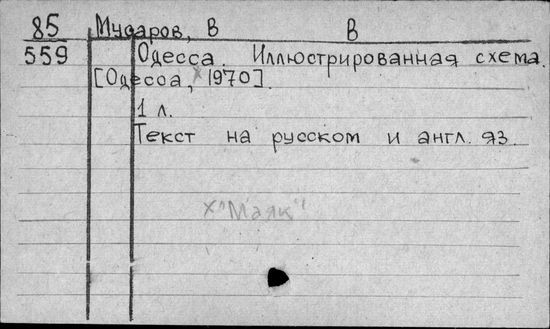 85 Мударов, В В
559 Одесса. Иллюстрированная схема.
[Одесса, 1970].
1 л.
Текст на русском и англ. яз.
х"Маяк"